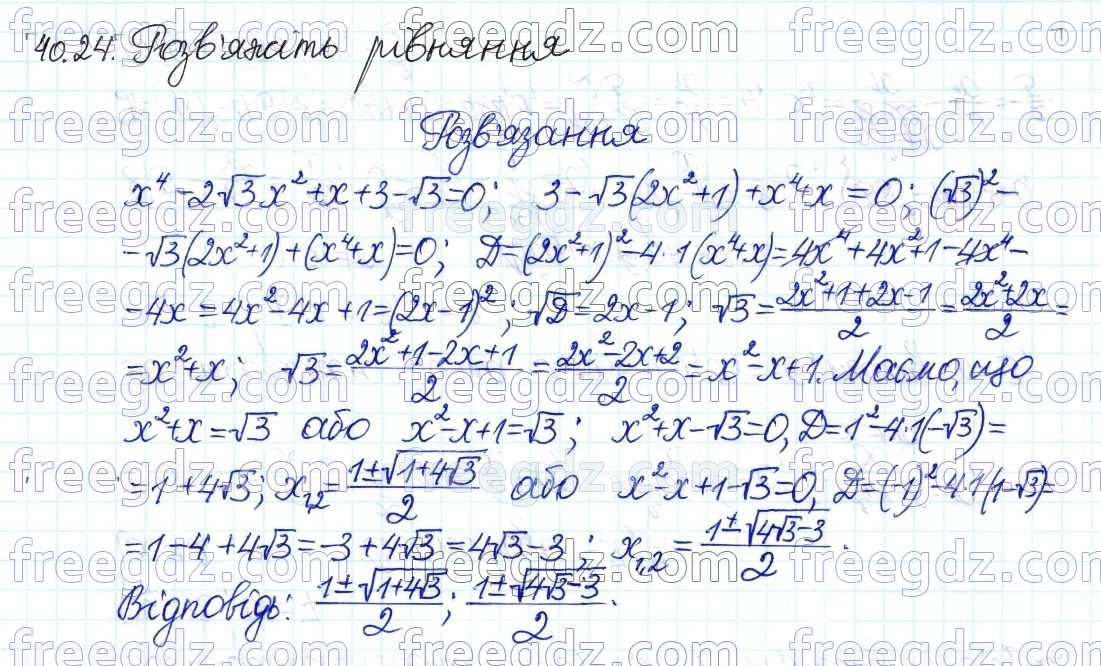 40.24. Розв'яжіть рівняння
Розв'язання
x⁴ - 2√3x² + x + 3 - √3 = 0; 3 - √3(2x² + 1) + x⁴ + x = 0; (√3)² -
- √3(2x² + 1) + (x⁴ + x) = 0; D = (2x² + 1)² - 4·1(x⁴ + x) = 4x⁴ + 4x² + 1 - 4x⁴ -
- 4x = 4x² - 4x + 1 = (2x - 1)²; √D = 2x - 1; √3 = (2x² + 1 + 2x - 1)/2 = (2x² + 2x)/2 =
= x² + x; √3 = (2x² + 1 - 2x + 1)/2 = (2x² - 2x + 2)/2 = x² - x + 1. Маємо, що
x² + x = √3 або x² - x + 1 = √3; x² + x - √3 = 0, D = 1² - 4·1(-√3) =
= 1 + 4√3; x₁,₂ = (1 ± √(1 + 4√3))/2 або x² - x + 1 - √3 = 0, D = (-1)² - 4·1(1 - √3) =
= 1 - 4 + 4√3 = -3 + 4√3 = 4√3 - 3; x₁,₂ = (1 ± √(4√3 - 3))/2.
Відповідь: (1 ± √(1 + 4√3))/2; (1 ± √(4√3 - 3))/2.
freegdz.com